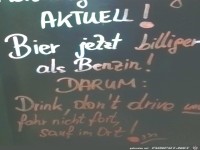 AKTUELL!
Bier jetzt billiger
als Benzin!
DARUM:
Drink, don't drive
fahr nicht fort,
sauf im Ort!